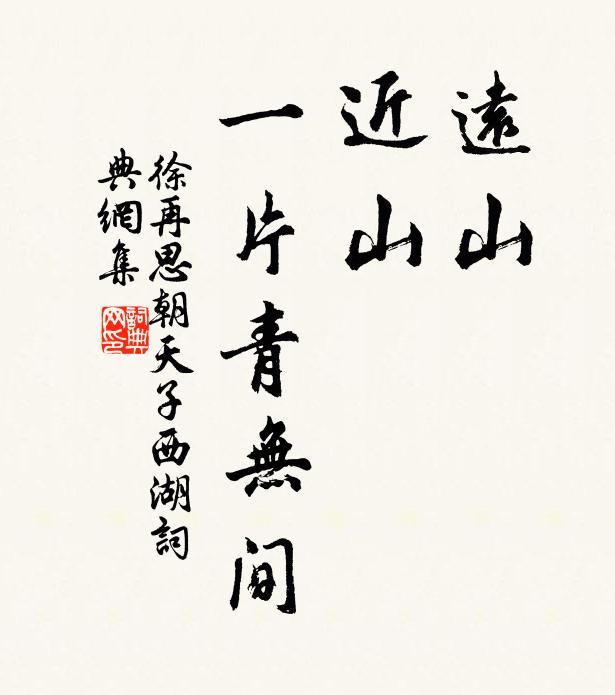 遠山
近山
一片青無間
徐再思朝天子西湖詞
典網集
詞典网印